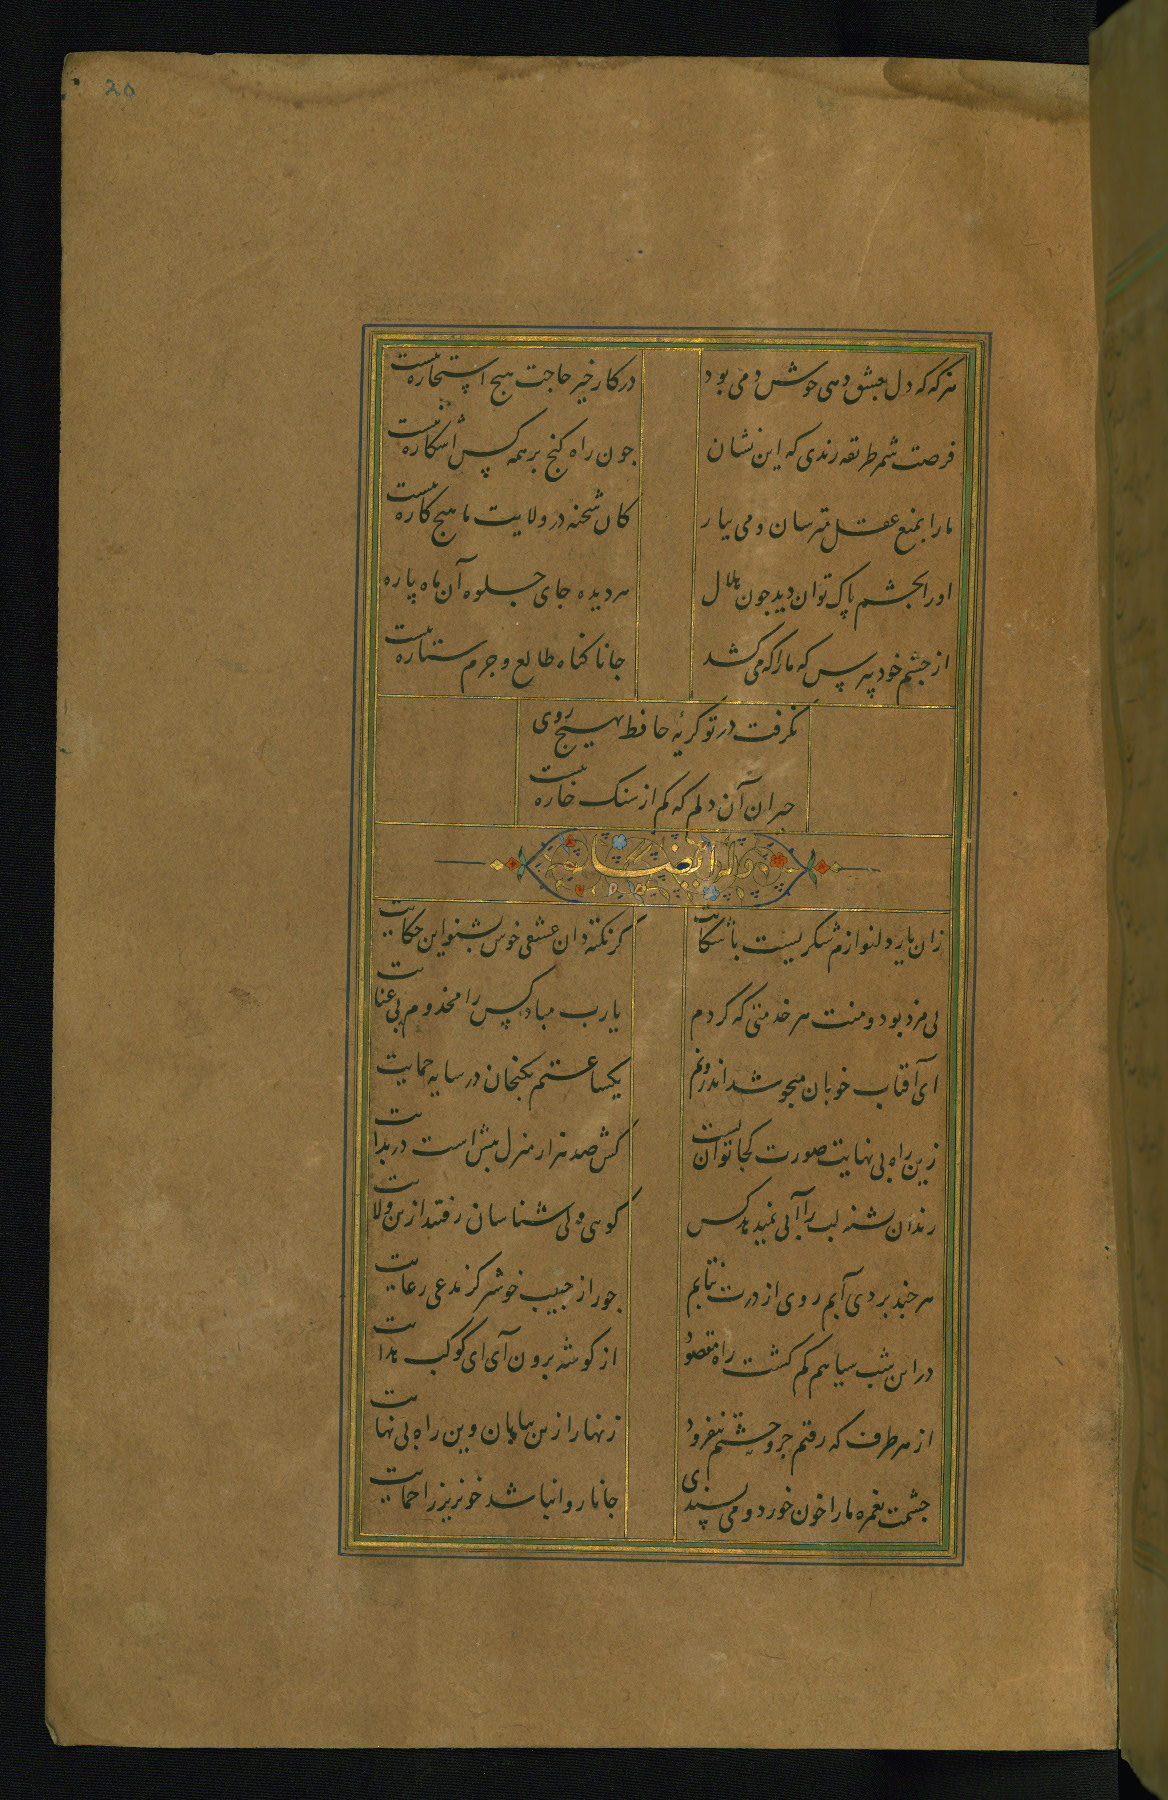 20
هرکه که دل بعشق دهی خوش دمی بود
درکار خیر حاجت هیچ استخاره نیست
فرصت شمر طریقه رندی که این نشان
جون راه کنج بر همه کس آشکاره نیست
مارا بمنع عقل مترسان و می بیار
کان شحنه در ولایت ما هیچ کاره نیست
اورا بجشم پاک توان دید جون هلال
هر دیده جای جلوه آن ماه پاره
از جشم خود بپرس که مارا که می کشد
جانا کناه طالع و جرم ستاره نیست
نکرفت در تو کریهٔ حافظ بهیچ روی
حیران آن دلم که کم از سنک خاره نیست
وله ایضا
زان یار دلنوازم شکریست با شکایت
کر نکته دان عشقی خوش بشنو این حکایت
بی مزد بود و منت هر خدمتی که کردم
یارب مباد کس را مخدوم بی عنایت
ای آفتاب خوبان میجوشد اندرونم
یکساعتم بکنجان در سایه حمایت
زین راه بی نهایت صورت کجا توان بست
کش صد هزار منزل بیش است در بدایت
رندان تشنه لب را آبی نمیدهد کس
کوهی ولی شناسان رفتند ازین ولایت
هر جند بردی آبم روی از درت نتابم
جور از حبیب خوشتر کز مدعی رعایت
در این شب سیاهم کم کشت راه مقصود
از کوشه برون آی ای کوکب هدایت
از هر طرف که رفتم جز وحشتم نیفزود
زنهار ازین بیابان وین راه بی نهایت
جشمت بغمزه مارا خون خورد و می پسندی
جانا روا نباشد خونریز را حمایت